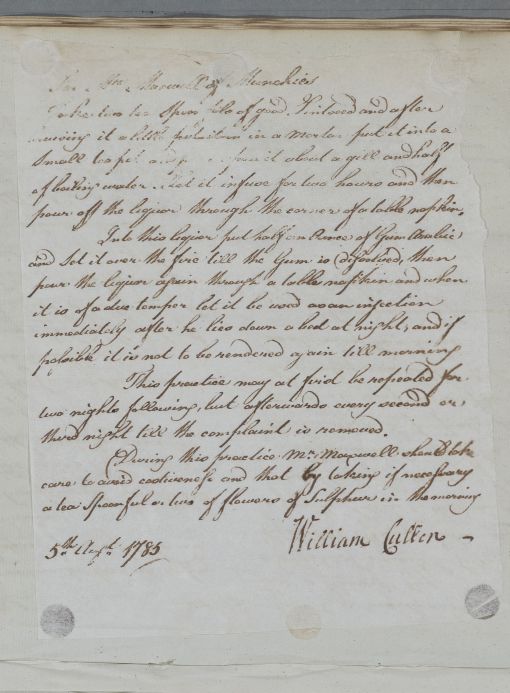 For Mr. Maxwell of Munches
Take two tea Spoonfuls of good Linseed and after
bruising it a little put it in a Mortar put it into a
Small tea pot and pour upon it about a gill and half
of boiling water. Let it infuse for two hours and then
pour off the liquor through the corner of a table napkin.
Into this liquor put half an Ounce of Gum Arabic
and Set it over the fire till the Gum is dissolved, then
pour the liquor again through a table napkin and when
it is of a due temper let it be used as an injection
immediately after he lies down a bed at night, and if
possible it is not to be rendered again till morning
This practice may at first be repeated for
two nights following, but afterwards every second or
third night till the complaint is removed.
During this practice Mr. Maxwell should take
care to avoid costiveness and that by taking if necessary
a tea Spoonful or two of flowers of Sulphur in the morning
William Cullen
5th. Augt. 1785